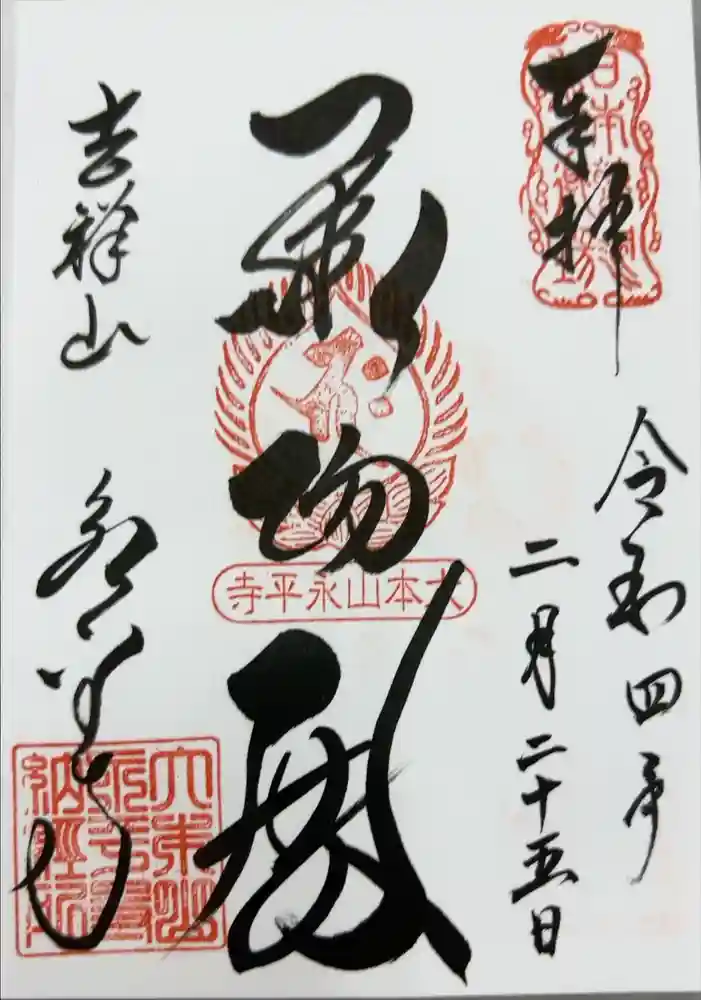 奉拝
令和四年
二月二十五日
承陽殿
大本山永平寺
吉祥山
永平寺
大本山
永平寺
納經所